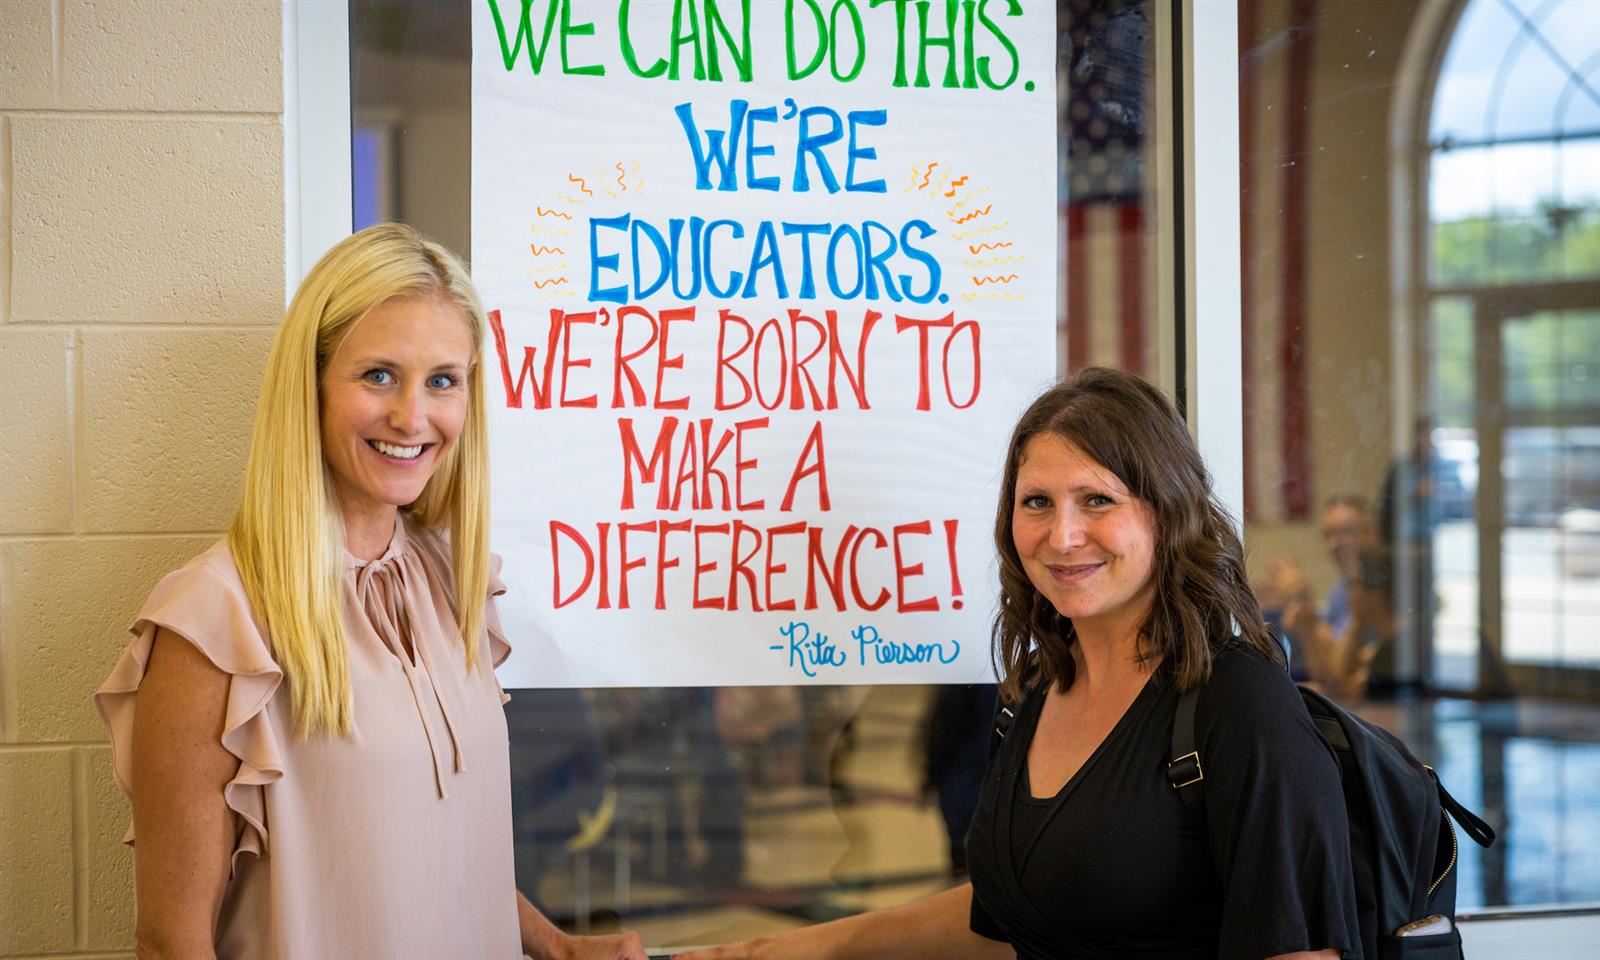 WE CAN DO THIS.
WE'RE
EDUCATORS.
WE'RE BORN TO
MAKE A
DIFFERENCE!
-Rita Pierson